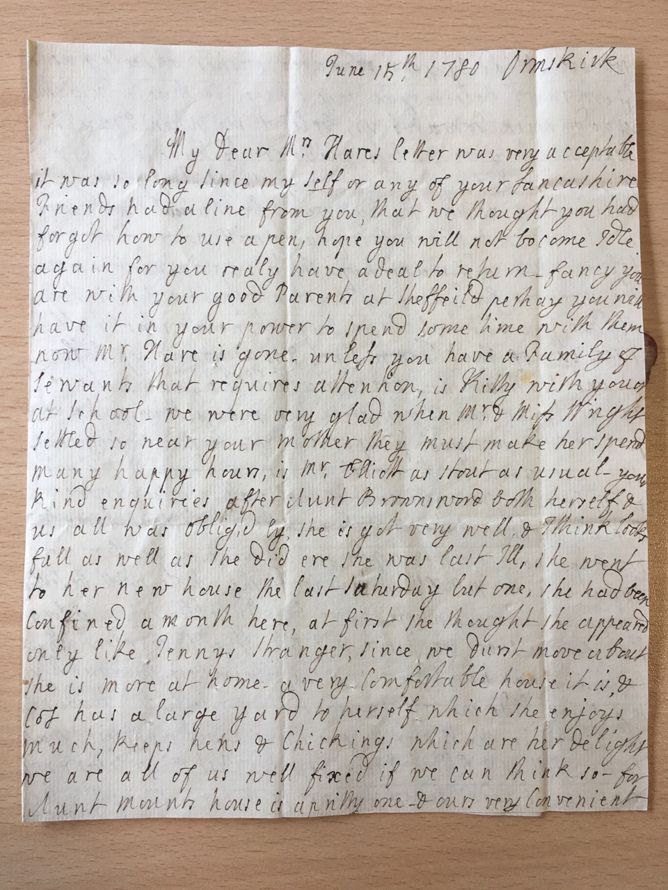 June 15th 1780 Ormskirk
My Dear Mrs Hares letter was very acceptable
it was so long since my self or any of your Lancashire
Friends had a line from you, that we thought you had
forgot how to use a pen, hope you will not become Idle
again for you realy have a deal to return - fancy you
are with your good Parents at Sheffeild perhap you neer
have it in your power to spend some time with them
now Mr. Hare is gone - unless you have a Family of
Servants that requires attention, is Kitty with you or
at School - we were very glad when Mr. & Miss Wright
settled so near your Mother they must make her spend
many happy hours, is Mr. Elliott as stout as usual - your
kind enquiries after Aunt Brownsword both herself &
us all was oblig'd by, she is got very well & I think looks
full as well as she did ere she was last Ill, she went
to her new house the last Saturday but one, she had been
confined a month here, at first she thought she appeared
only like Jennys Stranger, since we durst move about
she is more at home - a very Comfortable house it is, &
has a large yard to herself which she enjoys
much, keeps hens & Chickings which are her delight
we are all of us well fixed if we can think so - for
Aunt Mounts house is a pritty one - & ours very Convenient